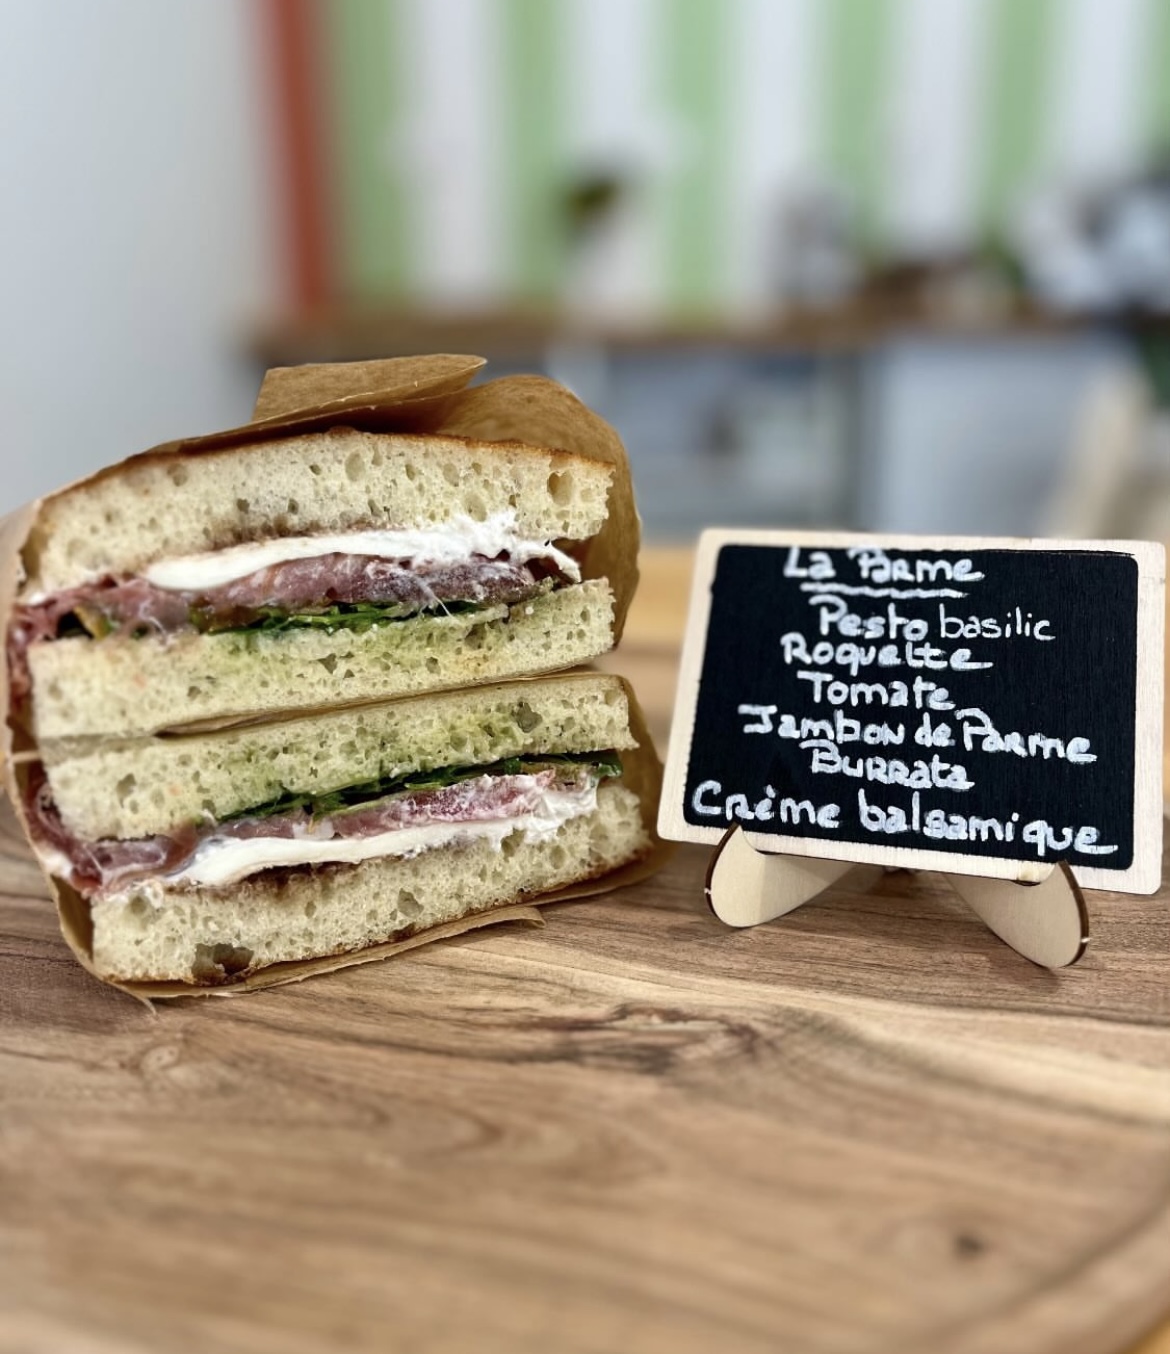 La Parme
Pesto basilic
Roquette
Tomate
Jambon de Parme
Burrata
Crème balsamique